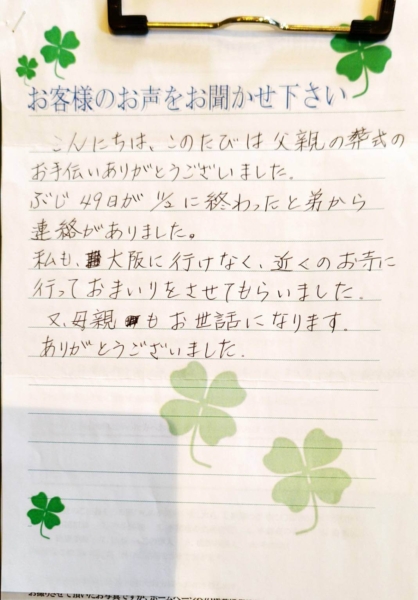 お客様のお声をお聞かせ下さい
こんにちは、このたびは父親の葬式の
お手伝いありがとうございました.
ぶじ49日が 11/2に終わったと弟から
連絡がありました。
私も、大阪に行けなく、近くのお寺に
行っておまいりをさせてもらいました.
又、母親もお世話になります.
ありがとうございました.